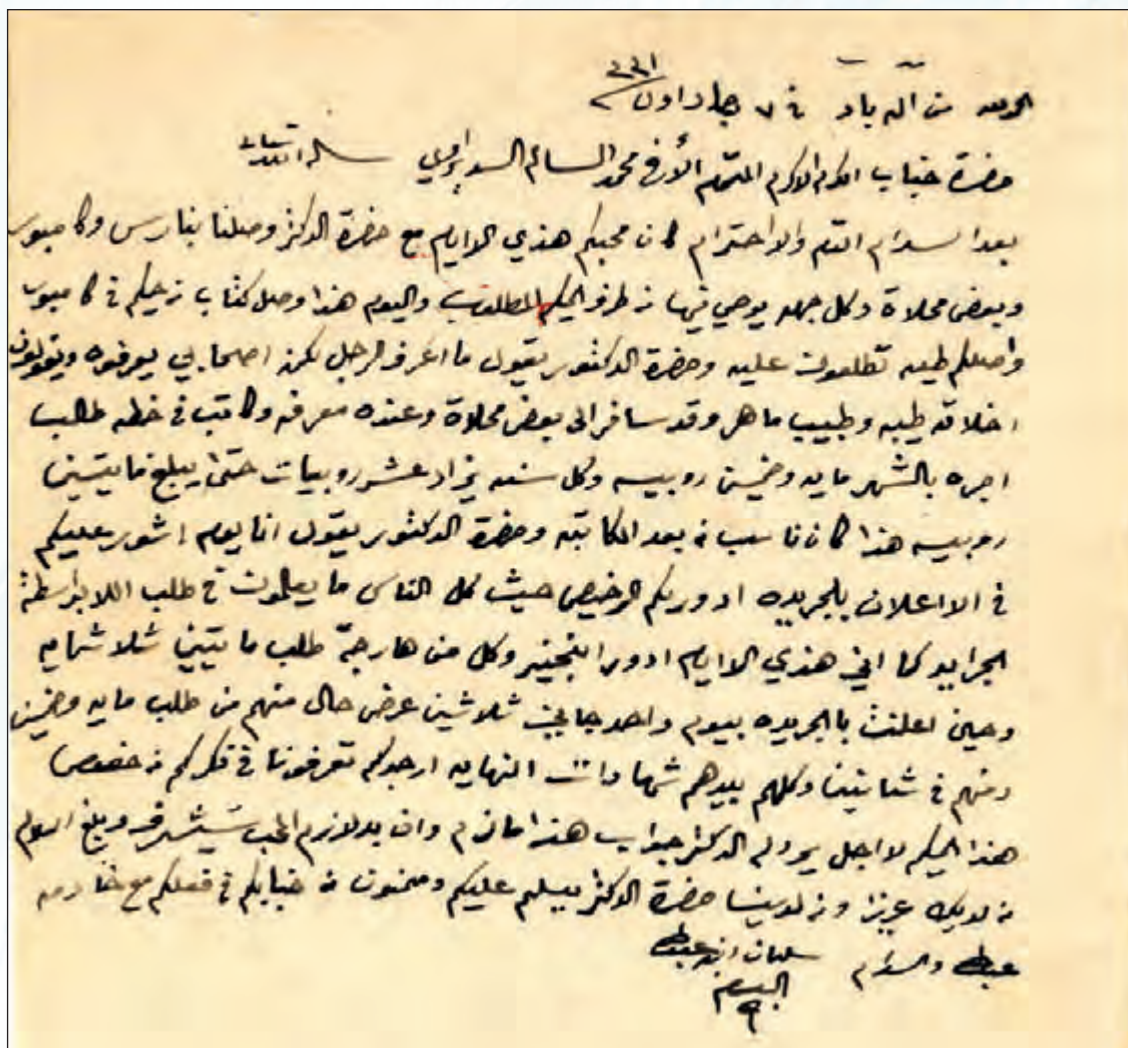 الحمد لله من اله باد في ٧ جماد اول ١٣٣١
حضرة جناب المكرم الاكرم المحترم الأفخم محمد السالم السديراوي سلمه الله تعالى
بعد السلام التام والاحترام كان محبكم هذي الايام مع حضرة الدكتر وصلنا بنارس وكامبور
وبعض محلاة وكل جهه يوصي فيها من طرف الحكيم المطلوب واليوم هذا وصل كتاب من حكيم في كامبور
واصلكم طيه تطلعون عليه وحضرة الدكتور يقول ما اعرف الرجل لكن اصحابي يعرفوه ويقولون
اخلاقه طيبه وطبيب ماهر وقد سافر الى بعض محلاة وعنده معرفه وكاتب في خطه طالب
اجره بالشهر مايه وخمسين روبيه وكل سنه يزاد عشر روبيات حتى يبلغ مايتين
روبيه هذا كان ناسب من بعد المكاتبه وحضرة الدكتور يقول انا يوم اشور عليكم
في الاعلان بالجريده ادور لكم الرخيص حيث كل الناس ما يعلمون في طلب اللا بواسطة
الجرايد كما اني هذي الايام ادور انجنير وكل من هارجة طلب مايتين ثلاثمايه
وحين اعلنت بالجريده بيوم واحد جاني ثلاثين عرض حال منهم من طلب مايه وخمسين
ومنهم في ثمانين وكلهم بيدهم شهادات النهايه ارجوكم تعرفونا في فكركم من خصوص
هذا الحكيم لاجل يرد له الدكتر جواب هذا ما لزم وان بد لازم المحب يتشرف وبلغ السلام
من لديك عزيز ومن لدينا حضرة الدكتر يسلم عليكم وممنون من جنابكم في فعلكم مع خادمه
عبدالله والسلام سلمان ابن عبدالله
البسام